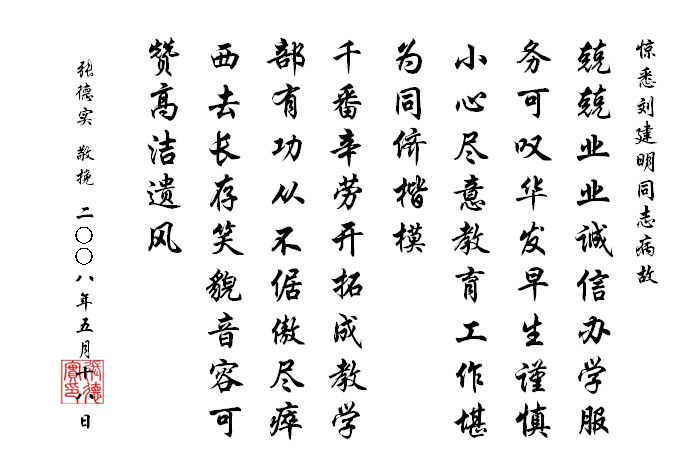 惊悉刘建明同志病故
兢兢业业诚信办学服
务可叹华发早生谨慎
小心尽意教育工作堪
为同侪楷模
千番辛劳开拓成教学
部有功从不倨傲尽瘁
西去长存笑貌音容可
赞高洁遗风
张德实 敬挽 二〇〇八年五月十八日
張德實印